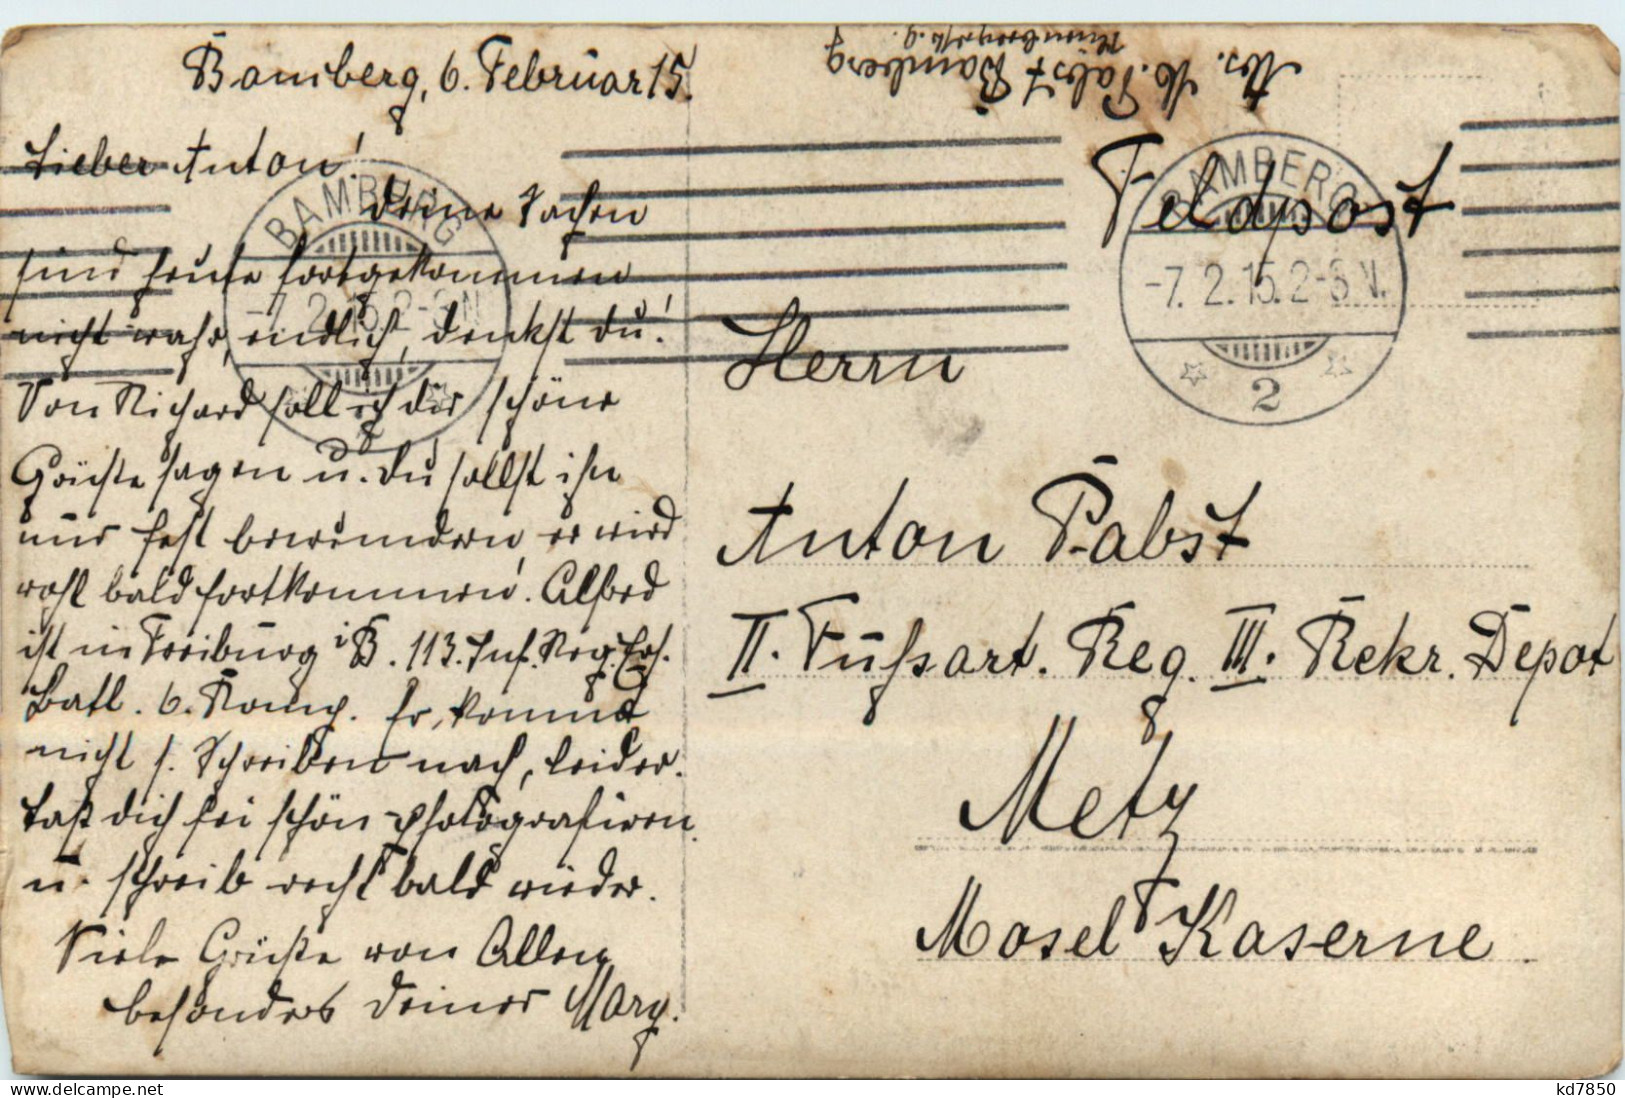 Bamberg, 6. Februar 15.
Lieber Anton!
Deine Sachen
sind heute fortgekommen
nicht wahr, endlich, denkst du!
Von Richard soll ich dir schöne
Grüße sagen u. du sollst ihn
nur fest bewundern, er wird
wohl bald fortkommen. Alfred
ist in Freiburg i B. 113. Inf. Reg. Ers.
Batl. 6. Komp. Er kommt
nicht z. Schreiben nach, leider.
Laß dich fei schön photografieren
u. schreib recht bald wieder.
Viele Grüße von Allen
besonders deiner Mary.
Abs. M. Pabst Bamberg
Feldpost
BAMBERG
-7.2.15.2-3 N.
2
BAMBERG
-7.2.15.2-3 N.
2
Herrn
Anton Pabst
II. Fußart. Reg. III. Rekr. Depot
Metz
Mosel Kaserne.
www.delcampe.net
kd7850